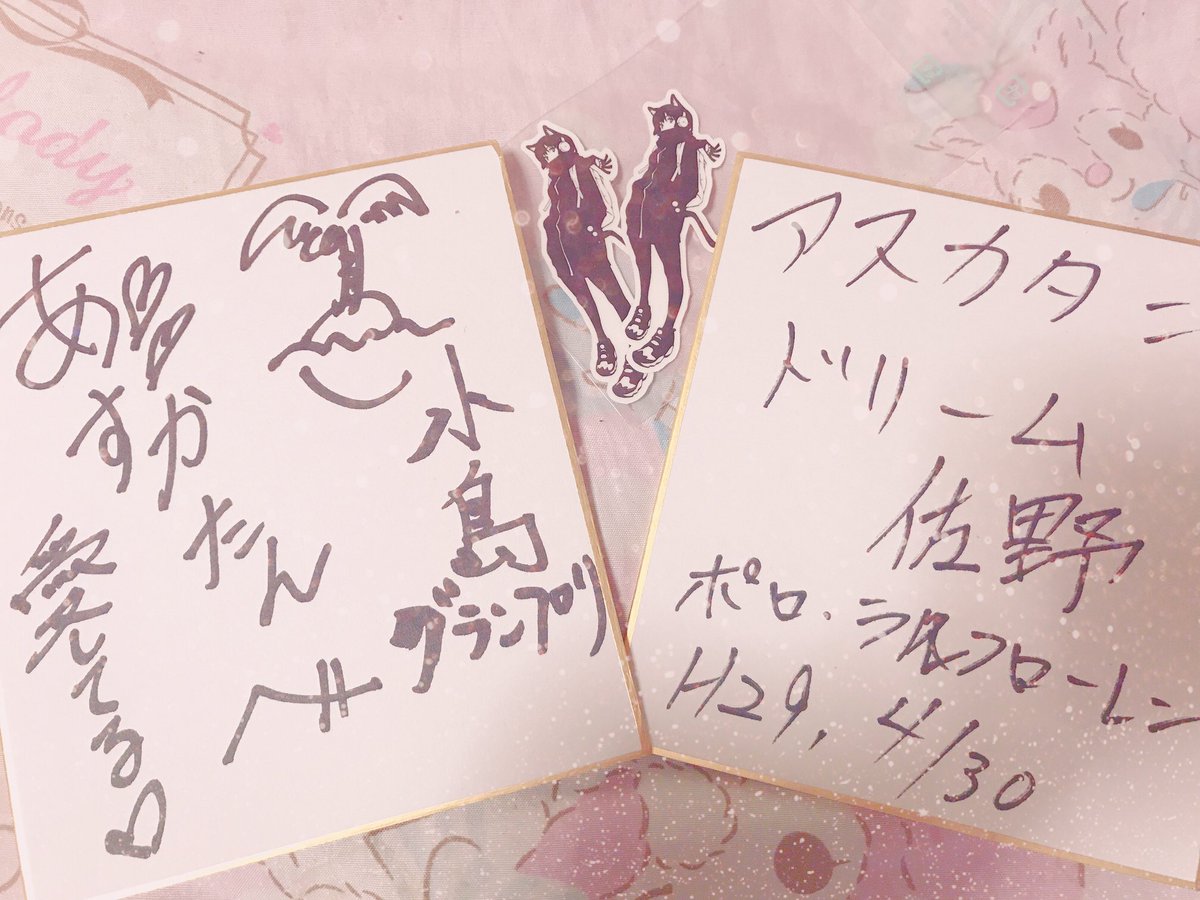 lady
ons
あすかたんへ
愛してる
水島
グランプリ
アスカタン
ドリーム
佐野
ポロ.ラルフローレン
H29, 4/30